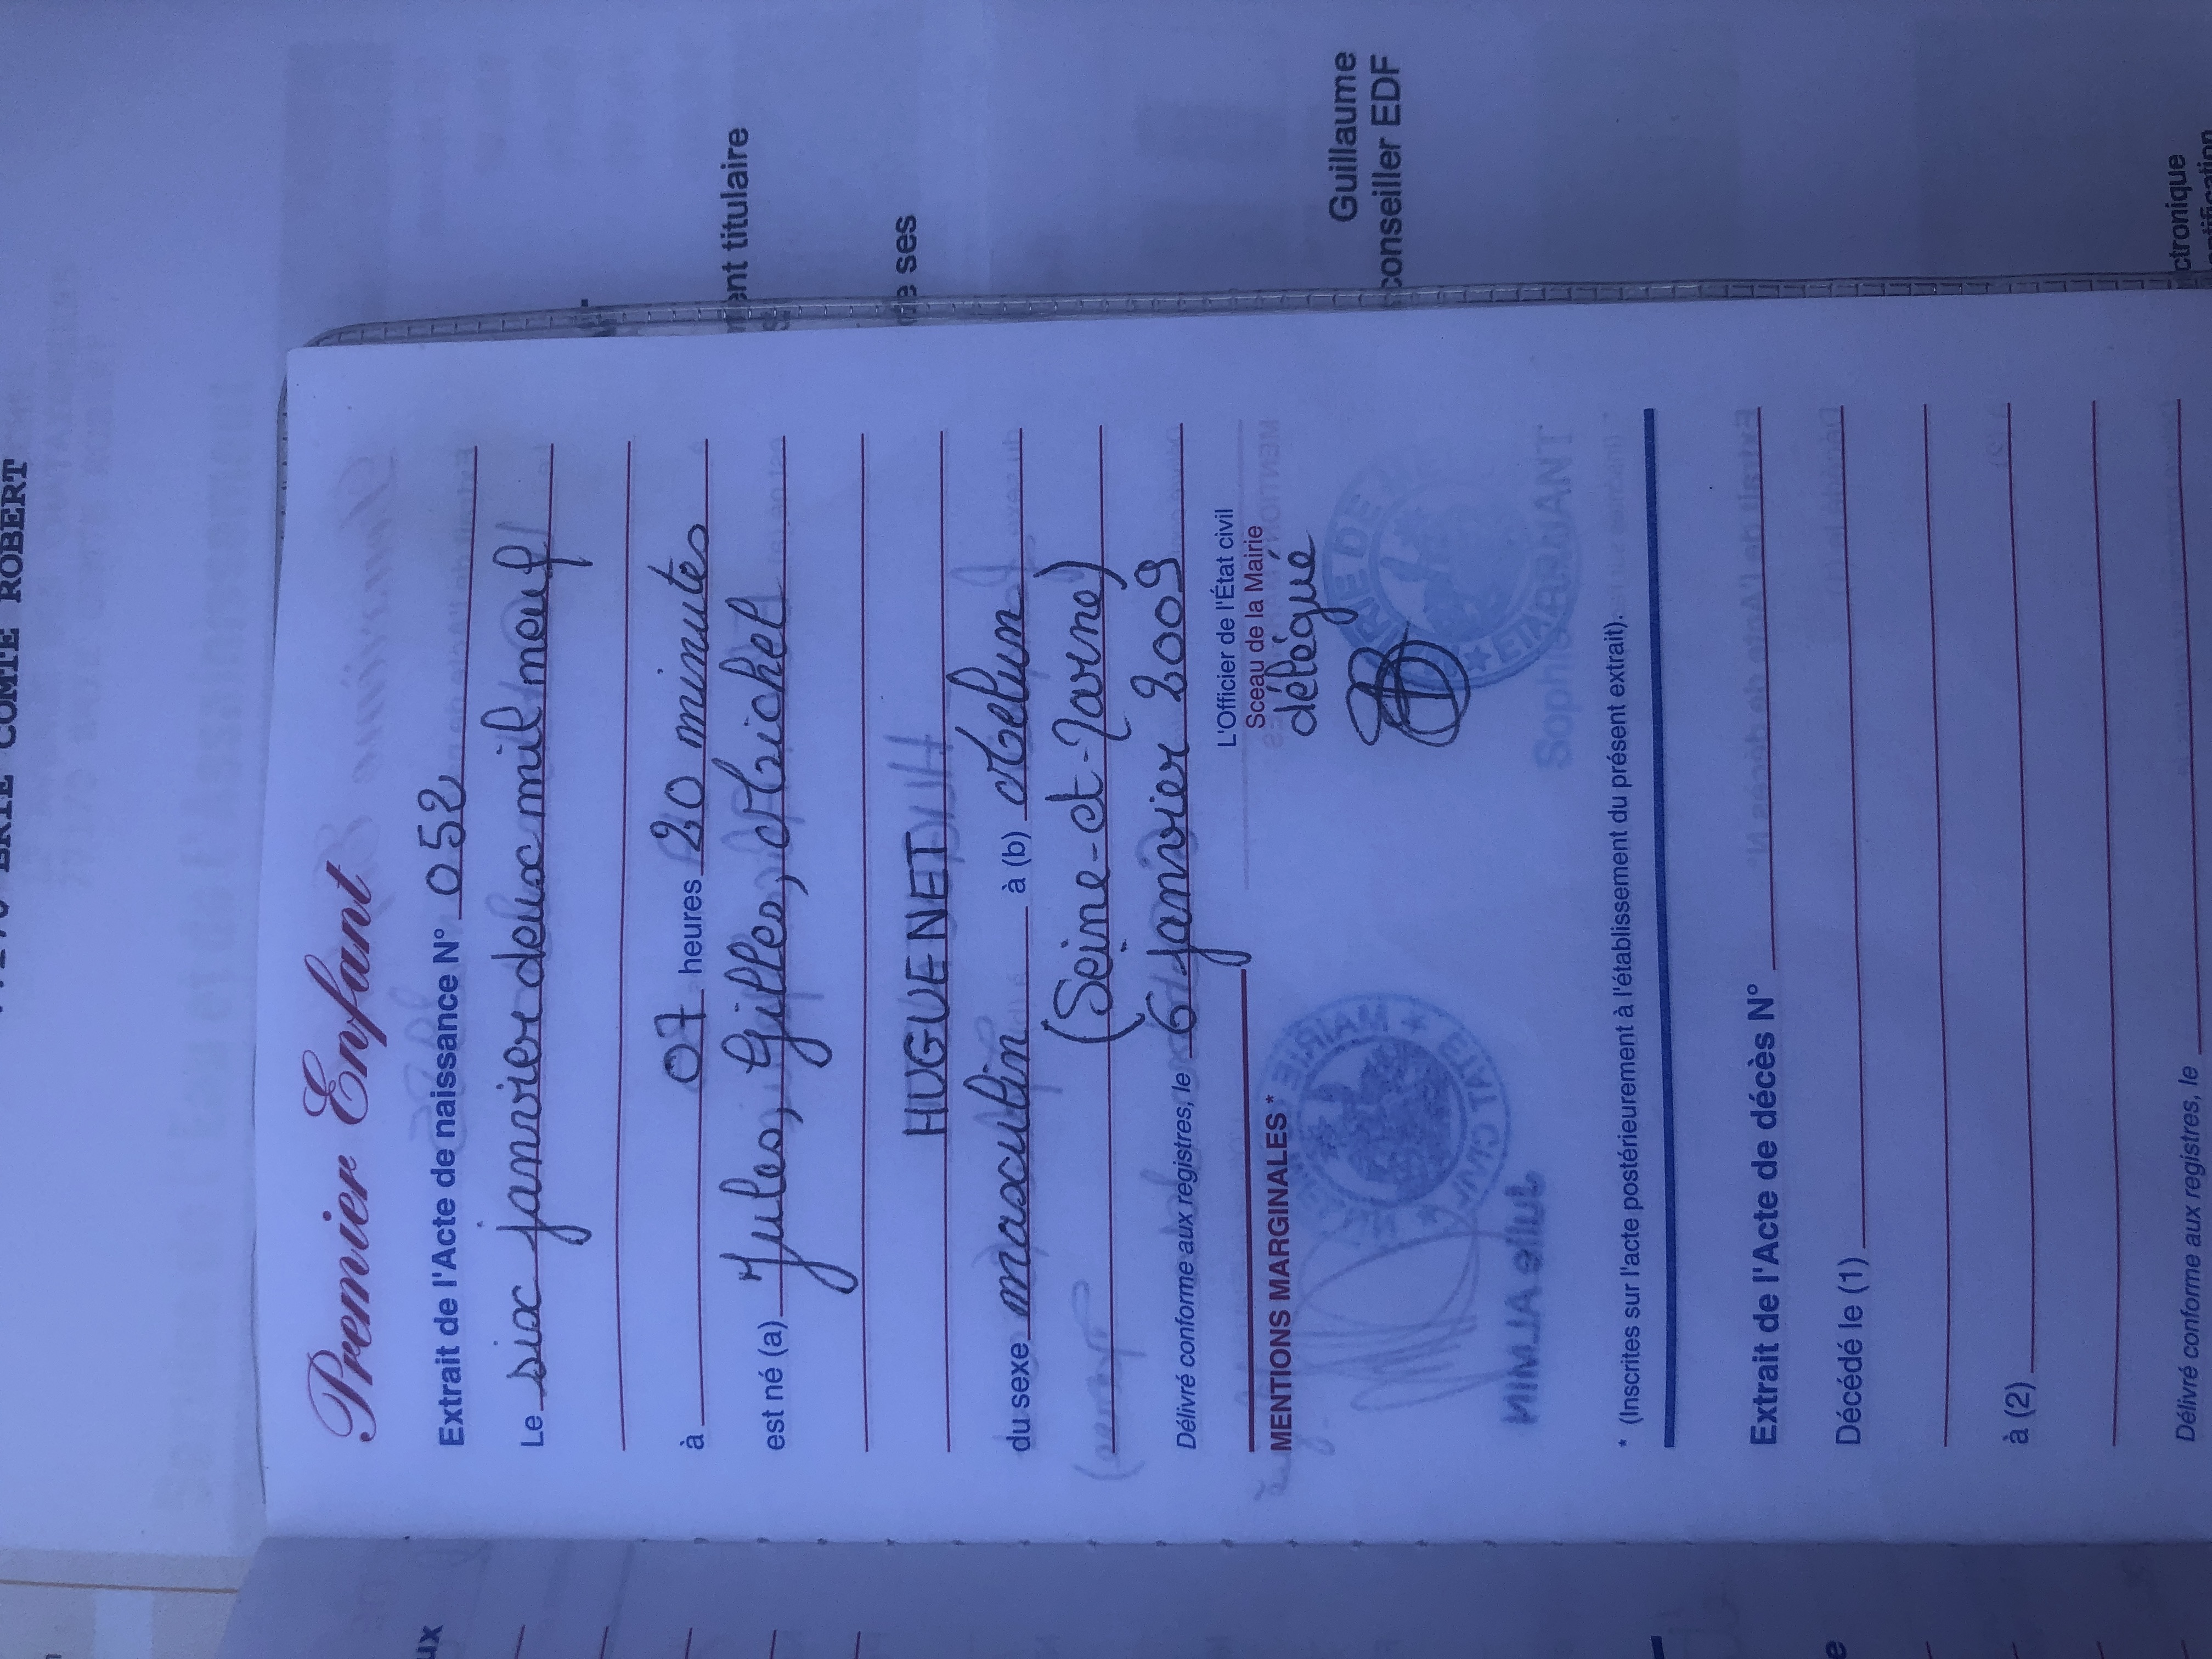 COMTE ROBERT
ent titulaire
e ses
Guillaume
conseiller EDF
ctronique
Premier Enfant
Extrait de l'Acte de naissance N° 052
Le six janvier deux mil neuf
à 07 heures 20 minutes
est né (a) Jules, Gilles, Michel
HUGUENET
du sexe masculin à (b) Melun
(Seine-et-Marne)
Délivré conforme aux registres, le 6 janvier 2009
L'Officier de l'État civil
Sceau de la Mairie
délégué
MENTIONS MARGINALES *
MAIRIE DE
ETAT CIVIL
Julie ALMIN
* (Inscrites sur l'acte postérieurement à l'établissement du présent extrait).
Extrait de l'Acte de décès N°
Décédé le (1)
à (2)
Délivré conforme aux registres, le
ux
e